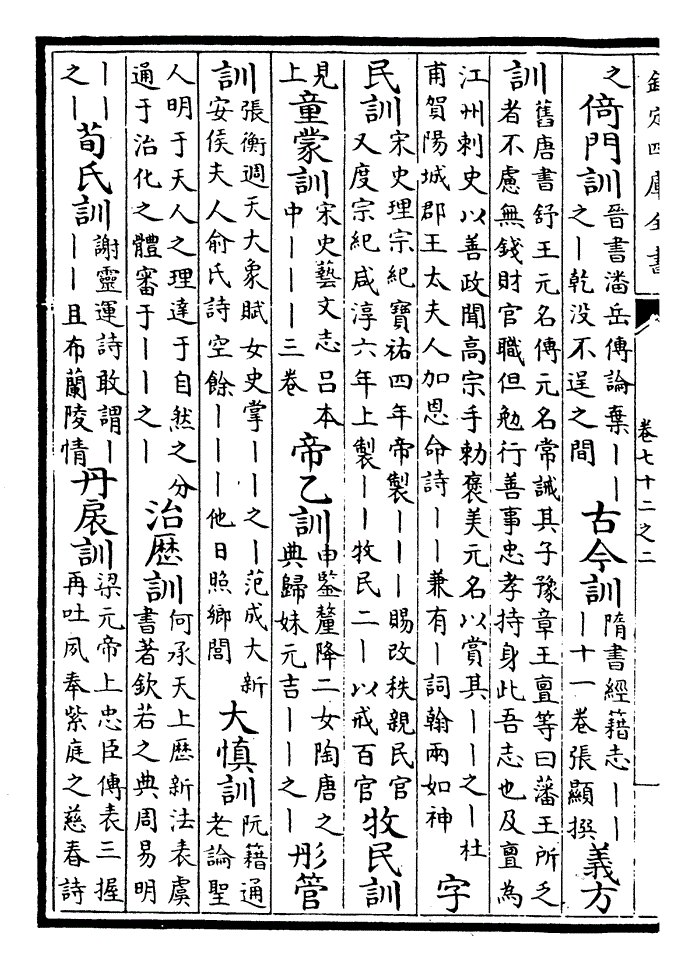 欽定四庫全書 卷七十二之二
之 倚門訓 晉書潘岳傳論棄丨丨之丨乾没不逞之間 古今訓 隋書經籍志丨丨丨十一卷張顯撰 義方
訓 舊唐書舒王元名傳元名常誡其子豫章王亶等曰藩王所乏者不慮無錢財官職但勉行善事忠孝持身此吾志也及亶為
江州刺史以善政聞高宗手勅褒美元名以賞其丨丨之丨杜甫賀陽城郡王太夫人加恩命詩丨丨兼有丨詞翰兩如神 字
民訓 宋史理宗紀寶祐四年帝製丨丨丨賜改秩親民官又度宗紀咸淳六年上製丨丨牧民二丨以戒百官 牧民訓
見上 童蒙訓 宋史藝文志吕本中丨丨丨三卷 帝乙訓 申鑒釐降二女陶唐之典歸妹元吉丨丨之丨 彤管
訓 張衡週天大象賦女史掌丨丨之丨范成大新安侯夫人俞氏詩空餘丨丨丨他日照鄉閭 大慎訓 阮籍通老論聖
人明于天人之理達于自然之分通于治化之體審于丨丨之丨 治歷訓 何承天上歷新法表虞書著欽若之典周易明
丨丨之丨 荀氏訓 謝靈運詩敢謂丨丨丨且布蘭陵情 丹扆訓 梁元帝上忠臣傳表三握再吐夙奉紫庭之慈春詩